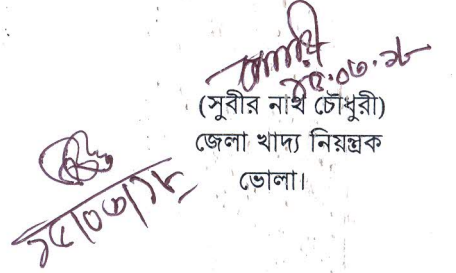 ১৫.০৩.১৮
(সুবীর নাথ চৌধুরী)
জেলা খাদ্য নিয়ন্ত্রক
ভোলা।
১৫/০৩/১৮